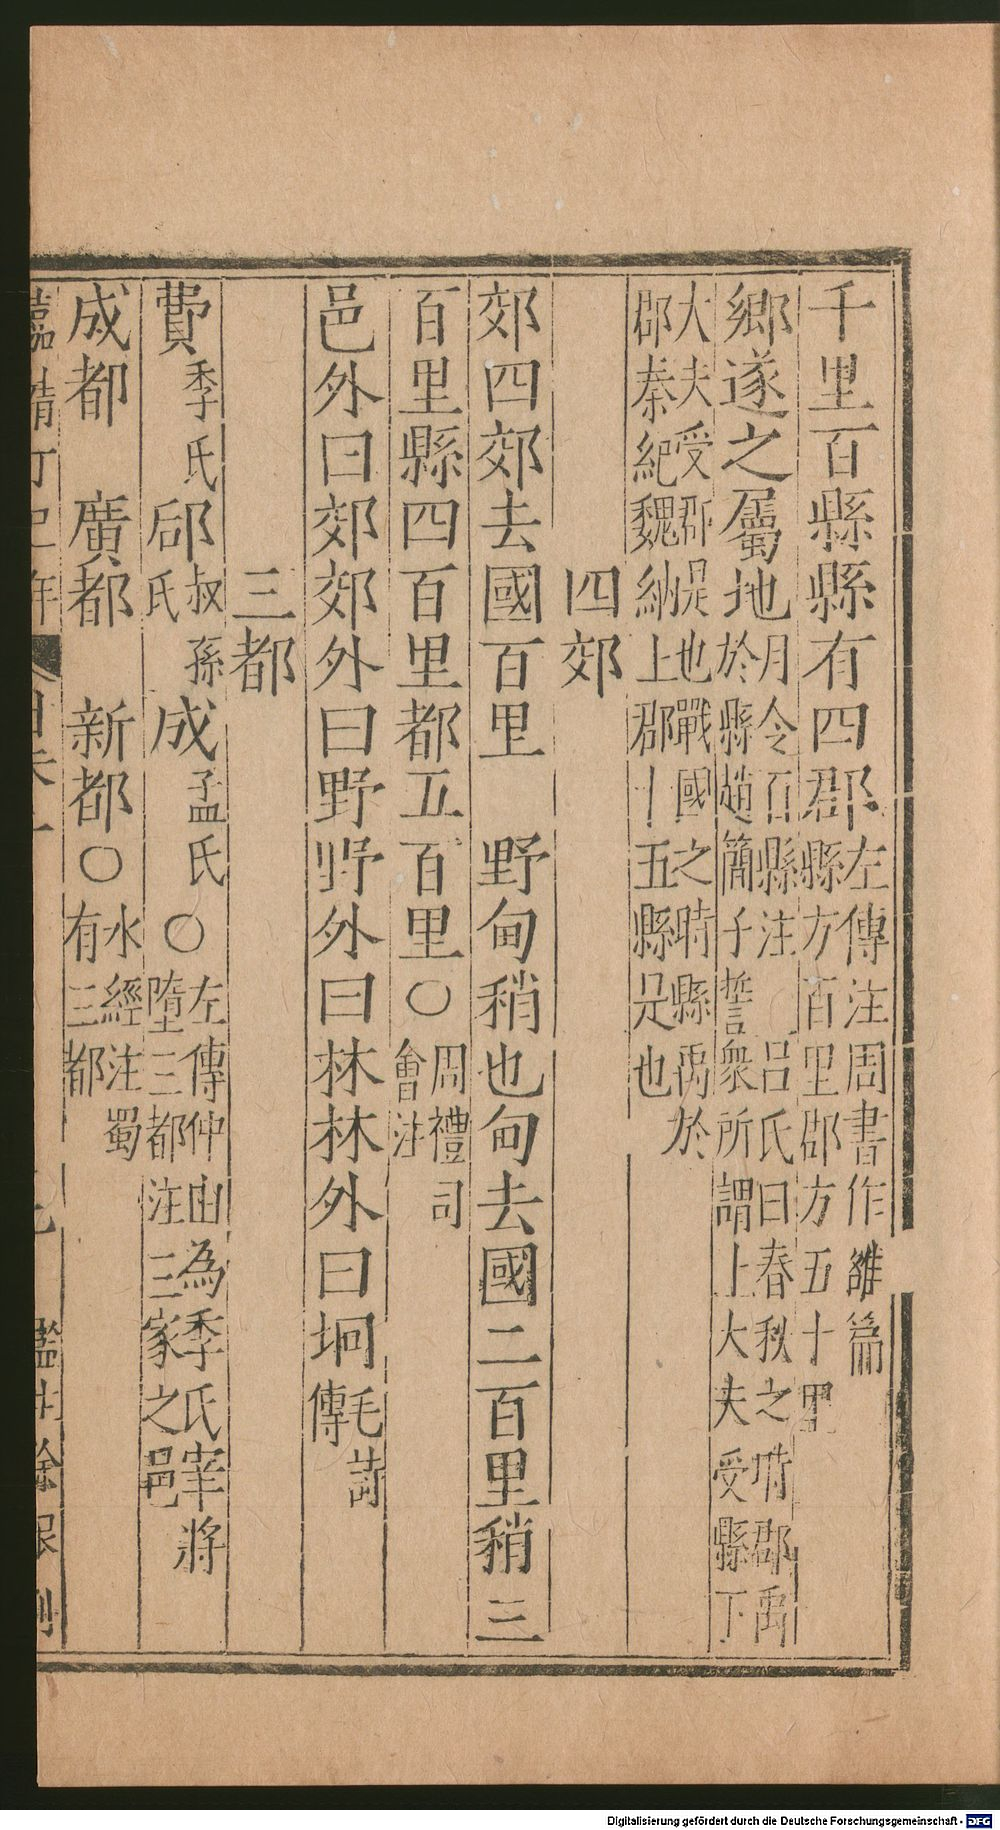 千里百縣縣有四郡左傳注周書作雒篇縣方百里郡方五十里
鄉遂之屬地月令百縣注〇呂氏曰春秋之時郡屬於縣趙簡子誓衆所謂上大夫受縣下
大夫受郡是也戰國之時縣屬於郡秦紀魏納上郡十五縣是也
四郊
郊四郊去國百里　野甸稍也甸去國二百里稍三
百里縣四百里都五百里〇周禮司會注
邑外曰郊郊外曰野野外曰林林外曰坰毛詩傳
三都
費季氏郈叔孫氏成孟氏〇左傳仲由為季氏宰將墮三都注三家之邑
成都　廣都　新都〇水經注蜀有三都
嘉靖丁巳年
Digitalisierung gefördert durch die Deutsche Forschungsgemeinschaft - DFG